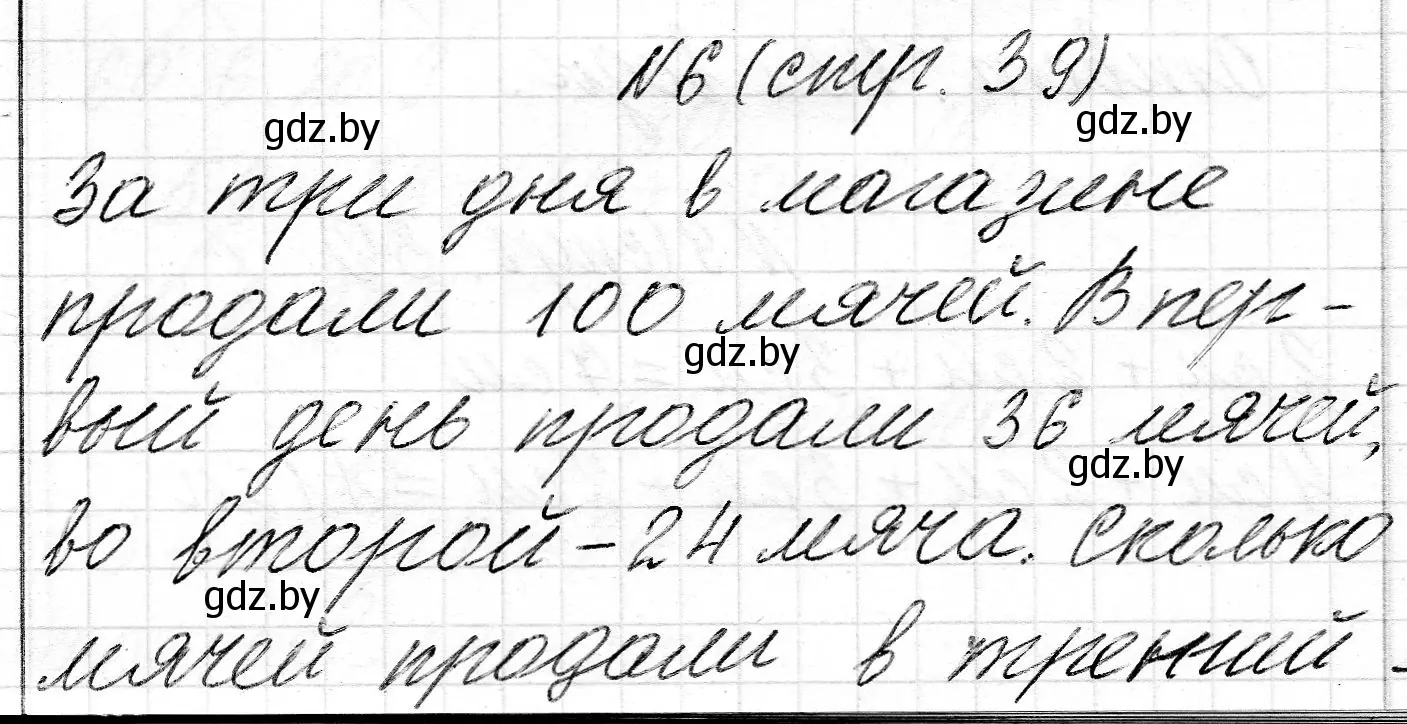 №6 (стр. 39)
gdz.by
gdz.by
За три дня в магазине
продали 100 мячей. В пер-
gdz.by
вый день продали 36 мячей,
gdz.by
во второй - 24 мяча. Сколько
gdz.by
мячей продали в тренний -